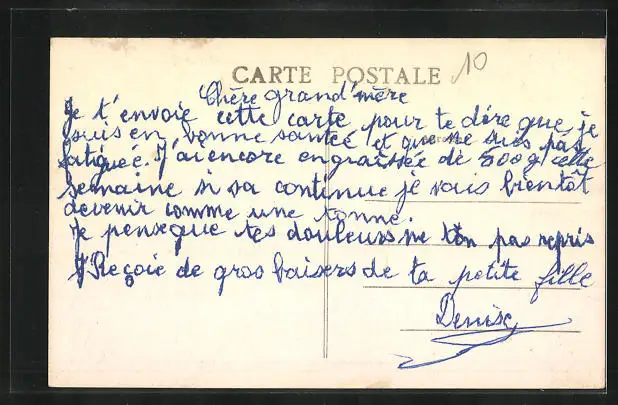 CARTE POSTALE
10
Chère grand'mère
Je t'envoie cette carte pour te dire que je
suis en bonne santée et que ne suis pas
fatiguée. J'ai encore engraissée de 500g cette
semaine si sa continue je vais bientôt
devenir comme une tonne.
Je pense que tes douleurs ne t'on pas repris
Reçoie de gros baisers de ta petite fille
Denise